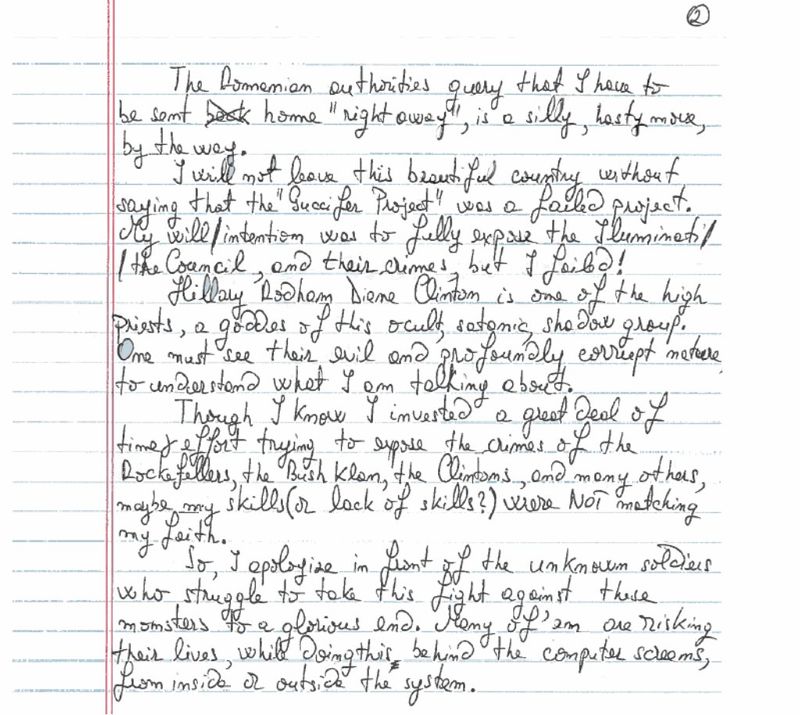 2
The Romanian authorities query that I have to
be sent back home "right away", is a silly, hasty move,
by the way.
I will not leave this beautiful country without
saying that the "Guccifer Project" was a failed project.
My will/intention was to fully expose the Iluminati/
/the Council, and their crimes, but I failed!
Hillary Rodham Diane Clinton is one of the high
priests, a goddes of this ocult, satanic, shadow group.
One must see their evil and profoundly corrupt nature
to understand what I am talking about.
Though I know I invested a great deal of
time & effort trying to expose the crimes of the
Rockefellers, the Bush Klan, the Clintons, and many others,
maybe my skills (or lack of skills?) were NOT matching
my faith.
So, I apologize in front of the unknown soldiers
who struggle to take this fight against these
monsters to a glorious end. Many of'em are risking
their lives, while doing this, behind the computer screens,
from inside or outside the system.